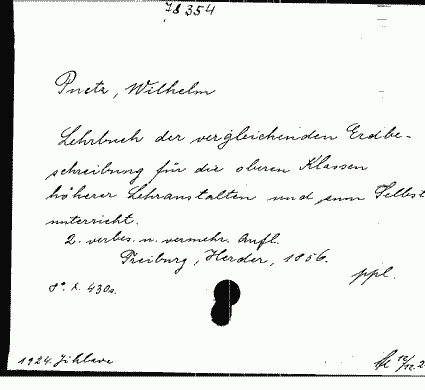 78354
Puetz, Wilhelm
Lehrbuch der vergleichenden Erdbe-
schreibung für die oberen Klassen
höherer Lehranstalten und zum Selbst
unterricht.
2. verbes. u. vermehr. Aufl.
Freiburg, Herder, 1856.
ppl.
8°. L. 430a.
1924. Jihlava